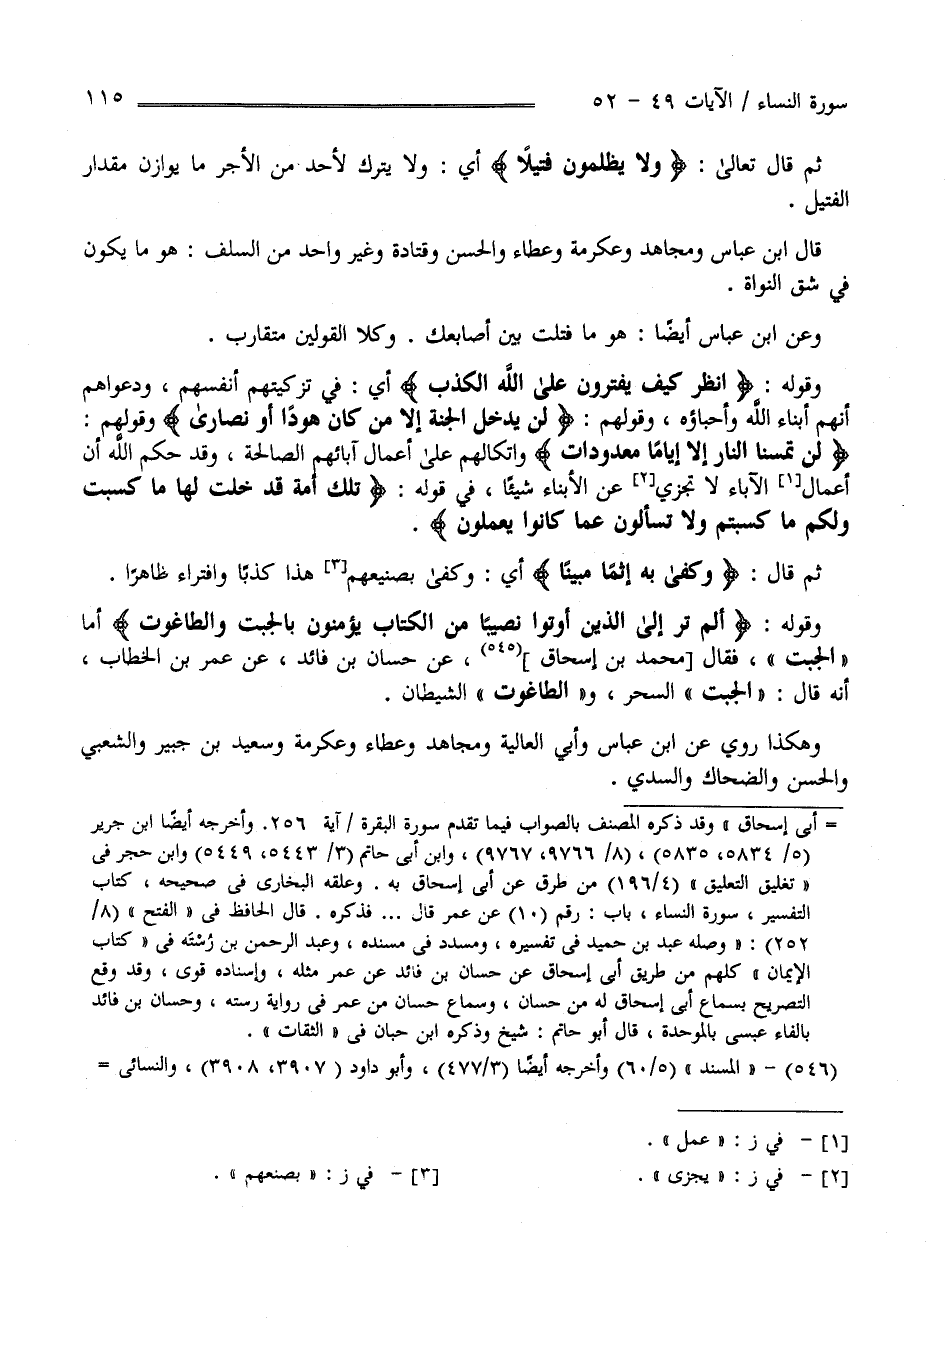 سورة النساء / الآيات ٤٩ - ٥٢ ١١٥
ثم قال تعالىٰ : ﴿ ولا يظلمون فتيلًا ﴾ أي : ولا يترك لأحد من الأجر ما يوازن مقدار
الفتيل .
قال ابن عباس ومجاهد وعكرمة وعطاء والحسن وقتادة وغير واحد من السلف : هو ما يكون
في شق النواة .
وعن ابن عباس أيضًا : هو ما فتلت بين أصابعك . وكلا القولين متقارب .
وقوله : ﴿ انظر كيف يفترون علىٰ اللَّه الكذب ﴾ أي : في تزكيتهم أنفسهم ، ودعواهم
أنهم أبناء اللَّه وأحباؤه ، وقولهم : ﴿ لن يدخل الجنة إلا من كان هودًا أو نصارىٰ ﴾ وقولهم :
﴿ لن تمسنا النار إلا إيامًا معدودات ﴾ واتكالهم علىٰ أعمال آبائهم الصالحة ، وقد حكم اللَّه أن
أعمال[١] الآباء لا تجزي[٢] عن الأبناء شيئًا ، في قوله : ﴿ تلك أمة قد خلت لها ما كسبت
ولكم ما كسبتم ولا تسألون عما كانوا يعملون ﴾ .
ثم قال : ﴿ وكفىٰ به إثمًا مبينًا ﴾ أي : وكفىٰ بصنيعهم[٣] هذا كذبًا وافتراء ظاهرًا .
وقوله : ﴿ ألم تر إلىٰ الذين أوتوا نصيبًا من الكتاب يؤمنون بالجبت والطاغوت ﴾ أما
« الجبت » ، فقال [محمد بن إسحاق ](٥٤٥) ، عن حسان بن فائد ، عن عمر بن الخطاب ،
أنه قال : « الجبت » السحر ، و« الطاغوت » الشيطان .
وهكذا روي عن ابن عباس وأبي العالية ومجاهد وعطاء وعكرمة وسعيد بن جبير والشعبي
والحسن والضحاك والسدي .
= أبى إسحاق » وقد ذكره المصنف بالصواب فيما تقدم سورة البقرة / آية ٢٥٦. وأخرجه أيضًا ابن جرير
(٥/ ٥٨٣٤، ٥٨٣٥) ، (٨/ ٩٧٦٦، ٩٧٦٧) ، وابن أبى حاتم (٣/ ٥٤٤٣، ٥٤٤٩) وابن حجر فى
« تغليق التعليق » (١٩٦/٤) من طرق عن أبى إسحاق به . وعلقه البخارى فى صحيحه ، كتاب
التفسير ، سورة النساء ، باب : رقم (١٠) عن عمر قال ... فذكره . قال الحافظ فى « الفتح » (٨/
٢٥٢) : « وصله عبد بن حميد فى تفسيره ، ومسدد فى مسنده ، وعبد الرحمن بن رُسْتَه فى « كتاب
الإيمان » كلهم من طريق أبى إسحاق عن حسان بن فائد عن عمر مثله ، وإسناده قوى ، وقد وقع
التصريح بسماع أبى إسحاق له من حسان ، وسماع حسان من عمر فى رواية رسته ، وحسان بن فائد
بالفاء عبسى بالموحدة ، قال أبو حاتم : شيخ وذكره ابن حبان فى « الثقات » .
(٥٤٦) - « المسند » (٦٠/٥) وأخرجه أيضًا (٤٧٧/٣) ، وأبو داود ( ٣٩٠٧، ٣٩٠٨) ، والنسائى =
[١] - في ز : « عمل » .
[٢] - في ز : « يجزى » . [٣] - في ز : « بصنعهم » .